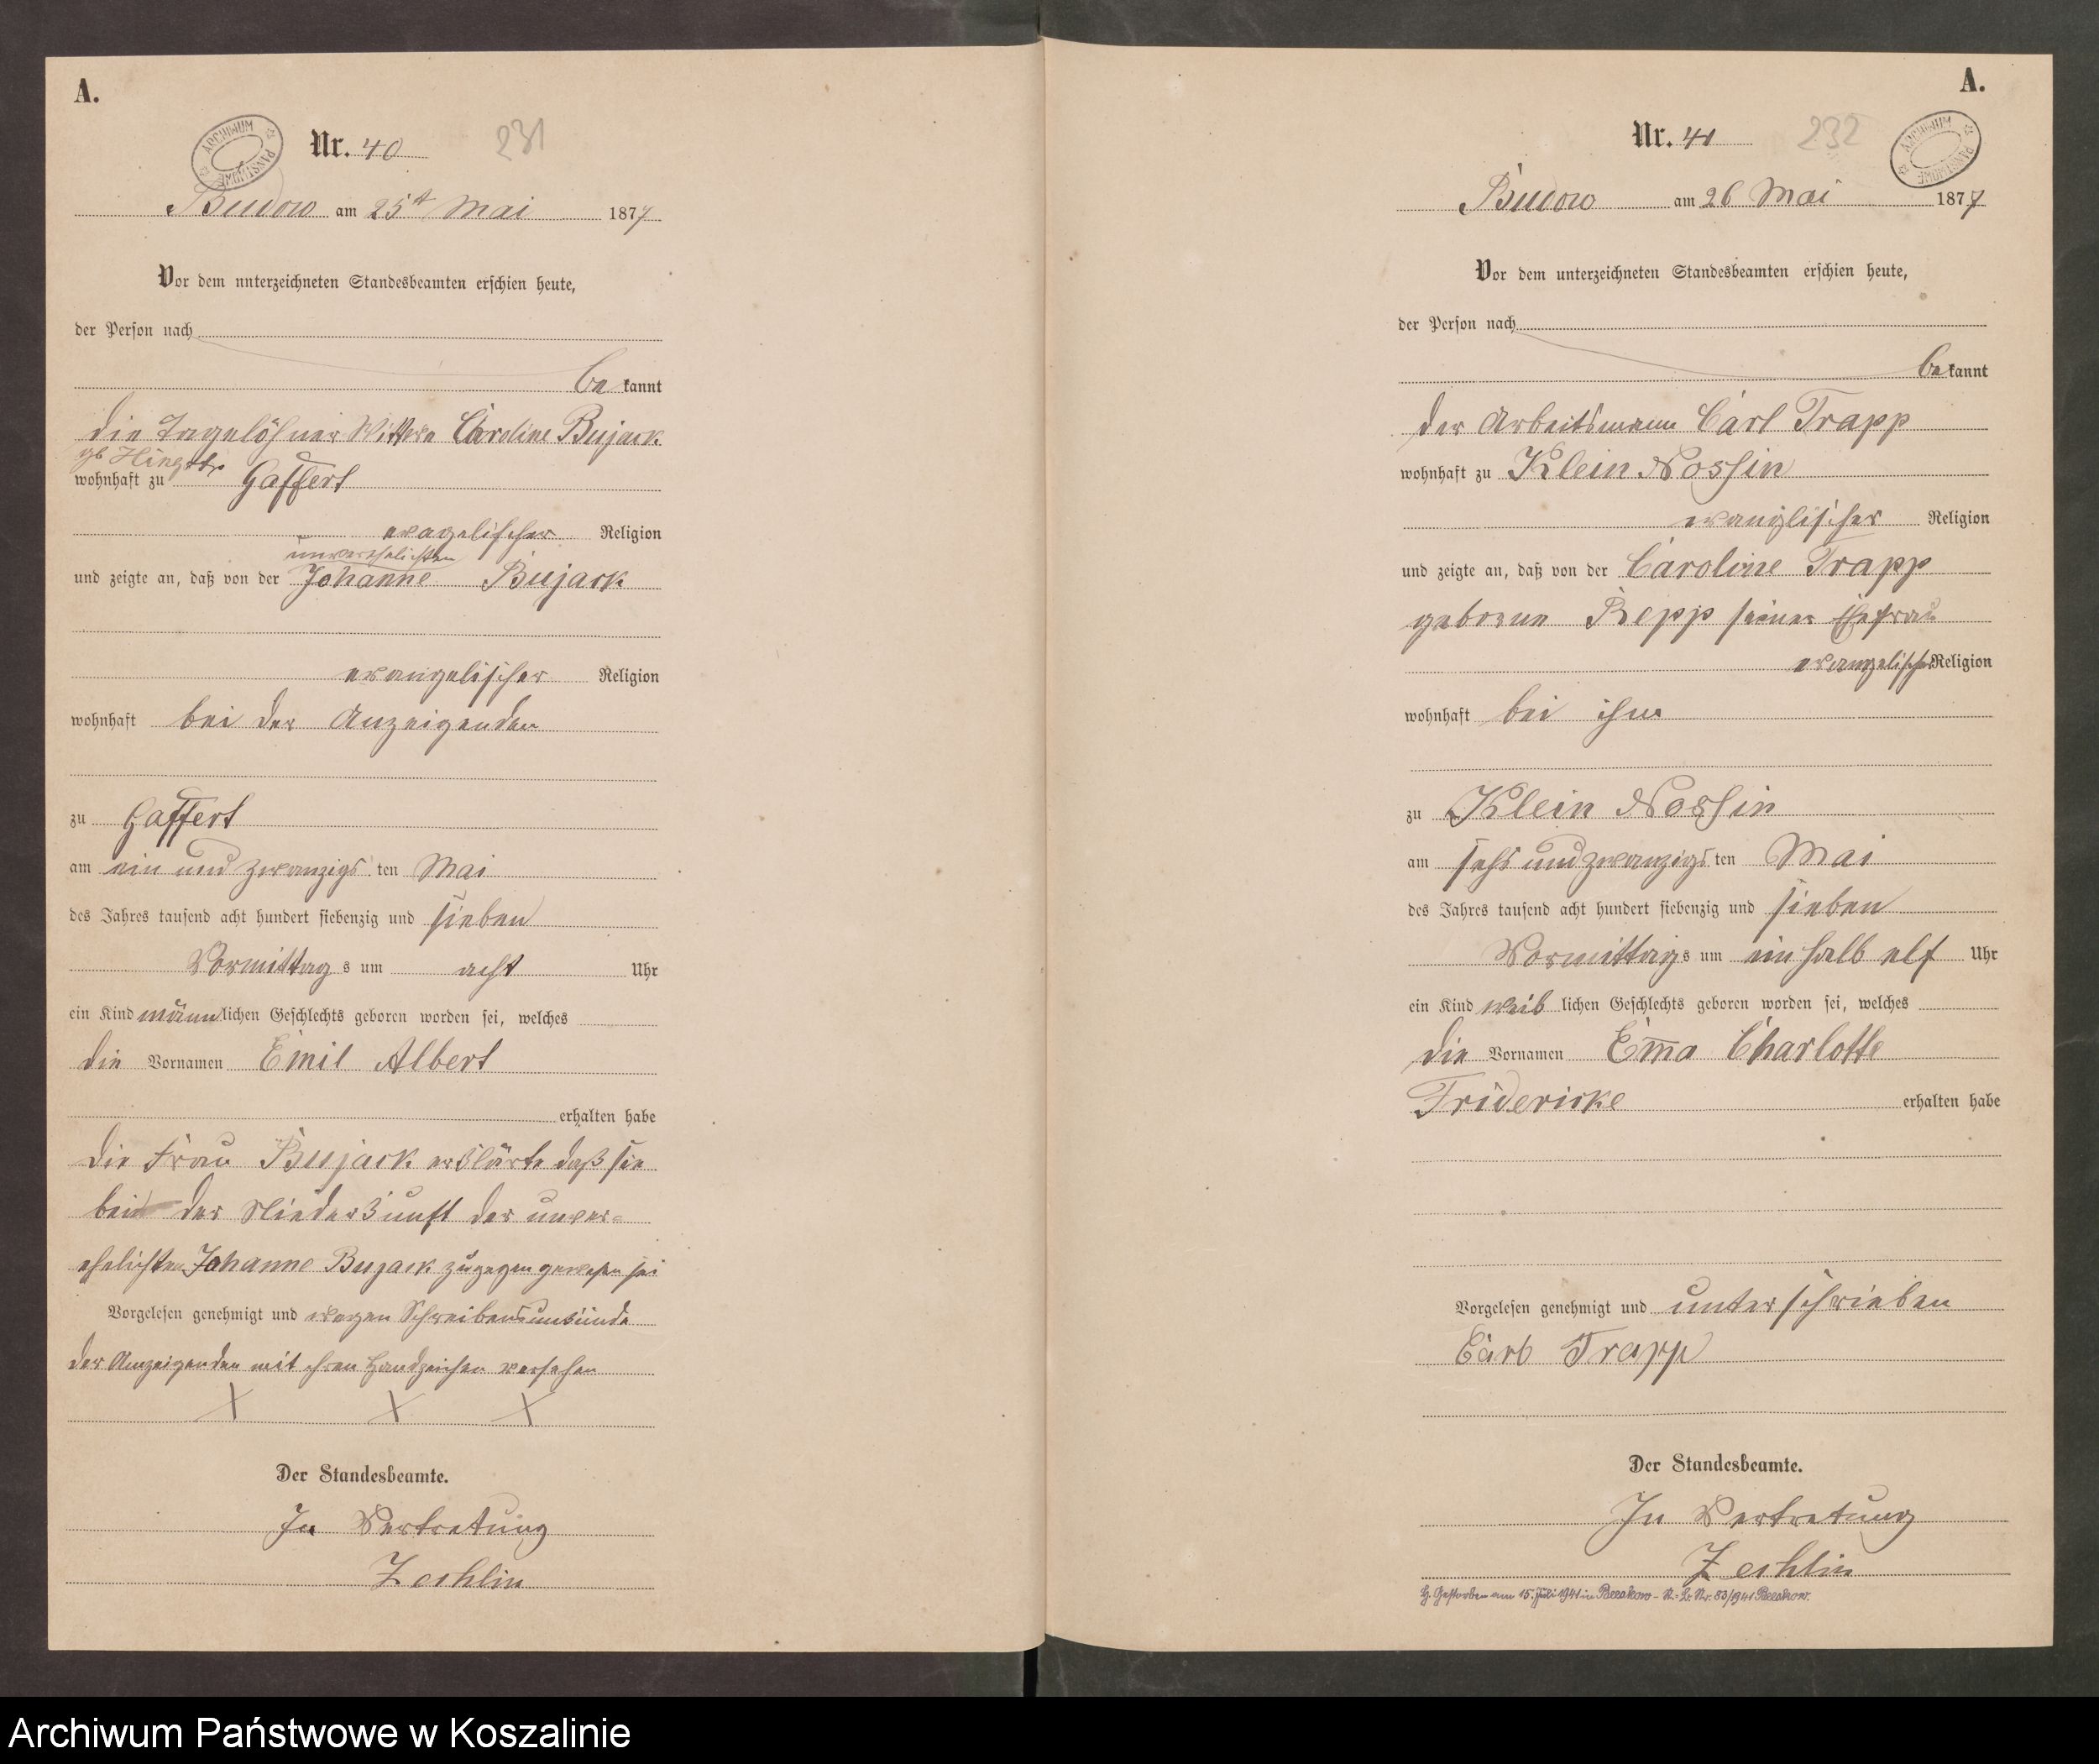 A.
ARCHIWUM PAŃSTWOWE
Nr. 40
231
Budow am 25t Mai 1877
Vor dem unterzeichneten Standesbeamten erschien heute,
der Person nach
be kannt
die Tagelöhner Wittwe Caroline Bujack
gb
wohnhaft zu Gaffert
evagelischer Religion
unverehelichten
und zeigte an, daß von der Johanne Bujack
evangelischer Religion
wohnhaft bei der Anzeigenden
zu Gaffert
am ein und zwanzigs ten Mai
des Jahres tausend acht hundert siebenzig und sieben
Vormittag s um acht Uhr
ein Kind männ lichen Geschlechts geboren worden sei, welches
die Vornamen Emil Albert
erhalten habe
die Frau Bujack erklärte daß sie
bei der Niederkunft der unver=
ehelichten Johanne Bujack zugegen gewesen sei
Vorgelesen genehmigt und wegen Schreibensunkunde
der Anzeigenden mit ihren Handzeichen versehen
X X X
Der Standesbeamte.
In Vertretung
Zechlin
A.
Nr. 41
232
ARCHIWUM PAŃSTWOWE
Budow am 26 Mai 1877
Vor dem unterzeichneten Standesbeamten erschien heute,
der Person nach
be kannt
der Arbeitsmann Carl Trapp
wohnhaft zu Klein Nossin
evanglischer Religion
und zeigte an, daß von der Caroline Trapp
geborne Repp seiner Ehefrau
evangelischer Religion
wohnhaft bei ihm
zu Klein Nossin
am sechs und zwanzigs ten Mai
des Jahres tausend acht hundert siebenzig und sieben
Vormittag s um ein halb elf Uhr
ein Kind weib lichen Geschlechts geboren worden sei, welches
die Vornamen Em̅a Charlotte
Fridericke erhalten habe
Vorgelesen genehmigt und unterschrieben
Carl Trapp
Der Standesbeamte.
In Vertretung
Zechlin
Gestorben am 15. Juli 1941 in Beelkow - St.-A. Nr. 83/1941 Beelkow.
Archiwum Państwowe w Koszalinie